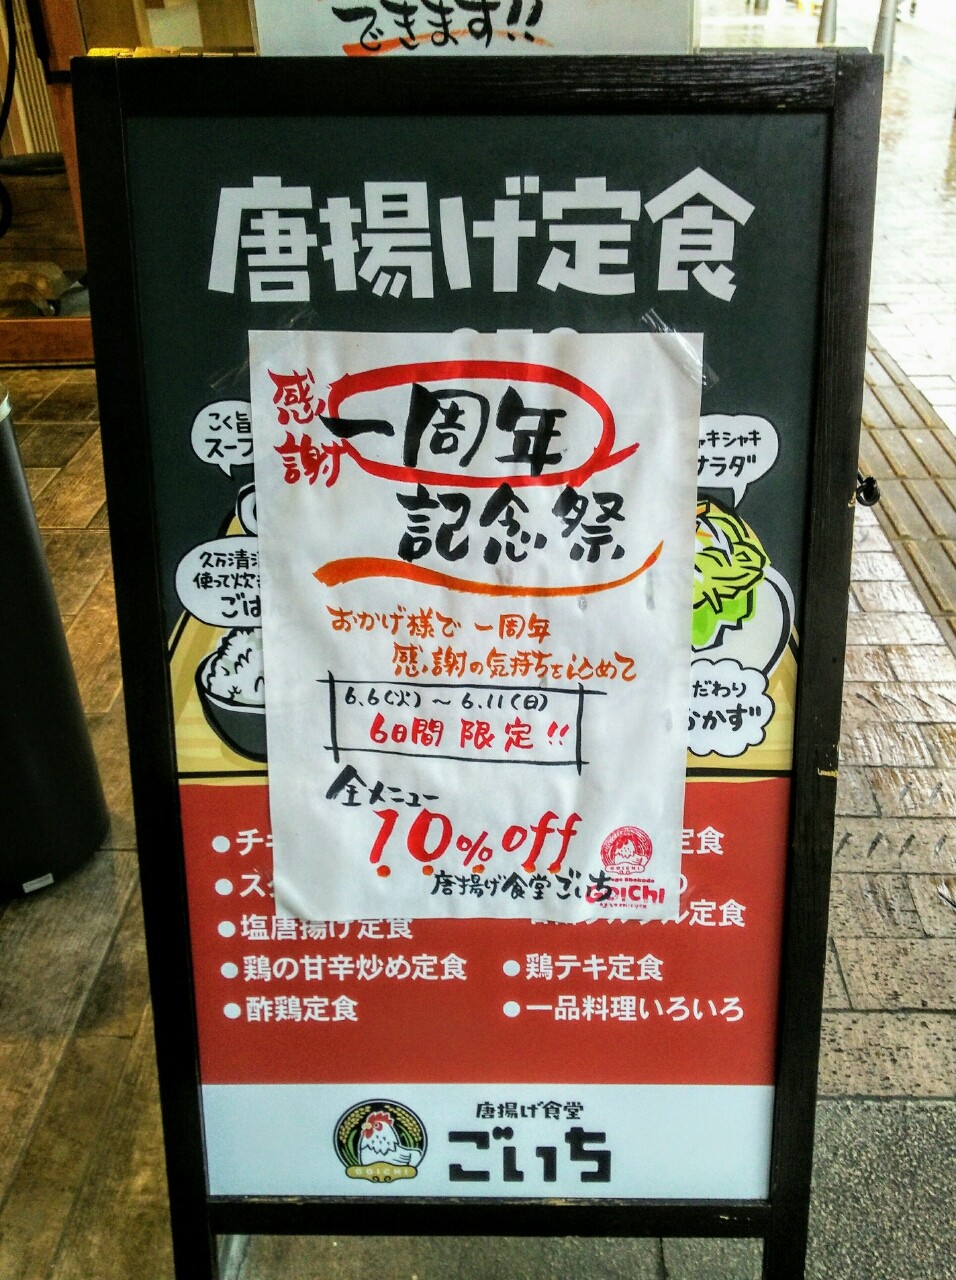 できます!!
唐揚げ定食
感謝
一周年
記念祭
おかげ様で一周年
感謝の気持ちを込めて
6.6(火)〜6.11(日)
6日間限定!!
全メニュー
10%off
唐揚げ食堂ごいち
GOICHI
GOICHI
こく旨
スープ
久万清
使って炊き
ごは
キシャキ
サラダ
だわり
かず
●チキ
●ス
●塩唐揚げ定食
●鶏の甘辛炒め定食
●酢鶏定食
定食
の
ル定食
●鶏テキ定食
●一品料理いろいろ
GOICHI
唐揚げ食堂
ごいち